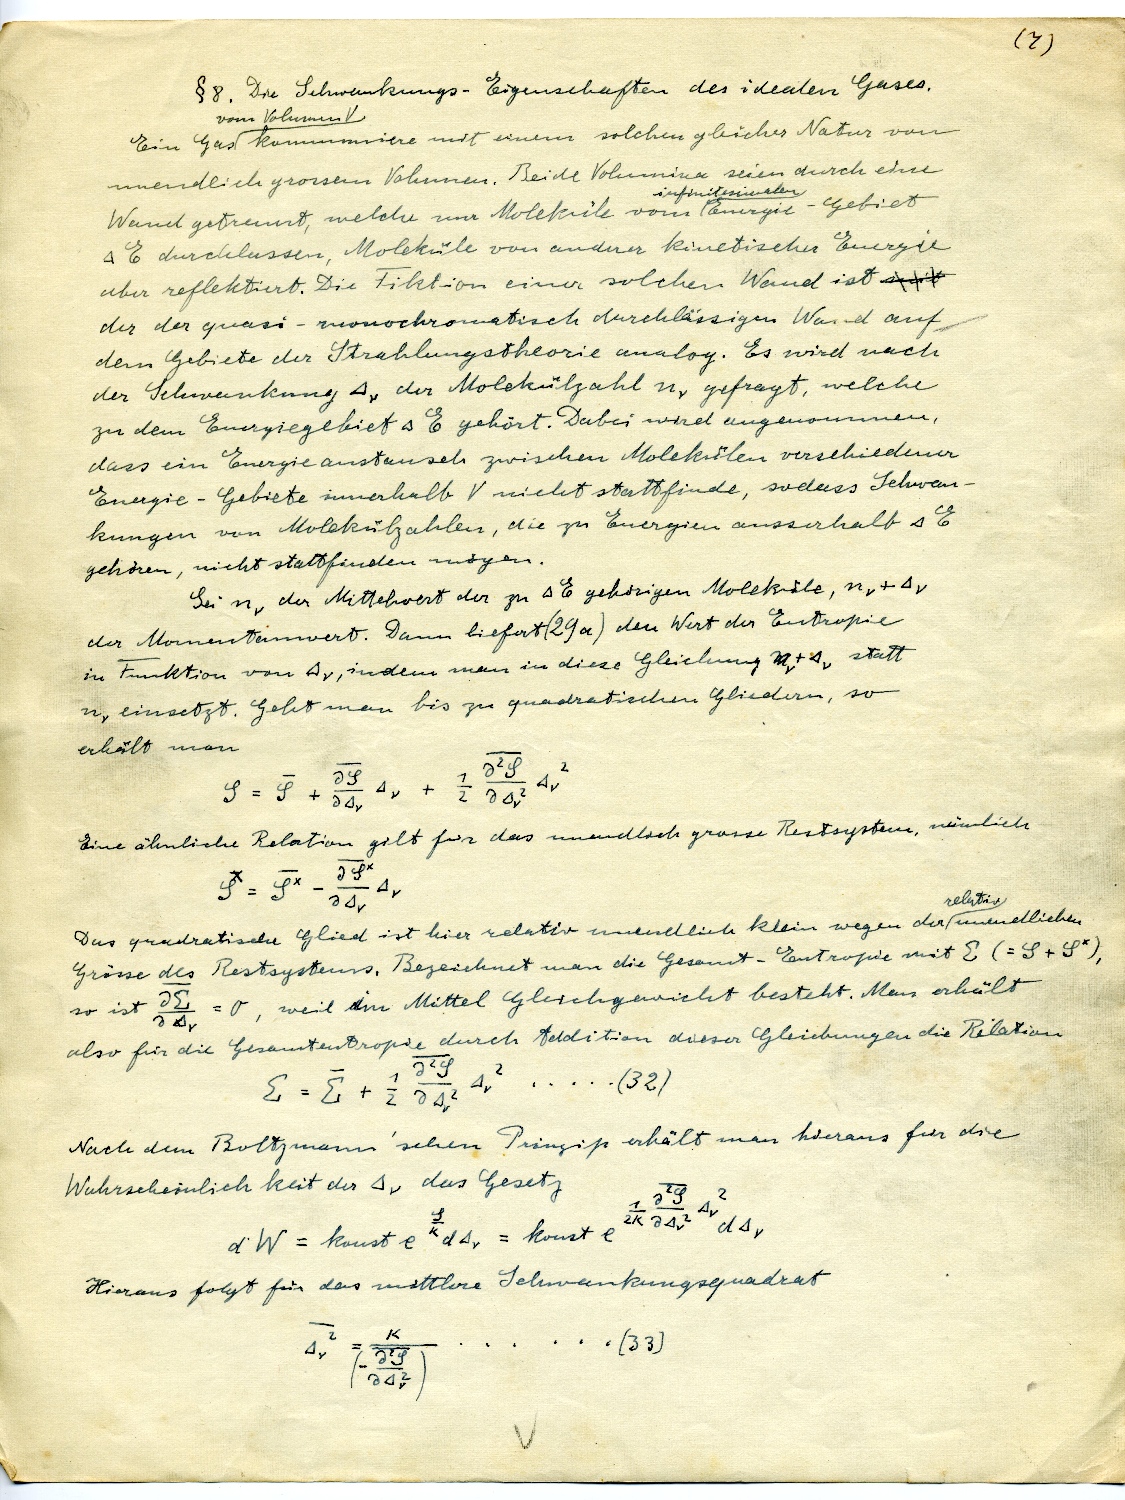 (7)
§ 8. Die Schwankungs-Eigenschaften des idealen Gases.
vom Volumen V
Ein Gas kommuniziere mit einem solchen gleicher Natur von
unendlich grossem Volumen. Beide Volumina seien durch eine
infinitesimalen
Wand getrennt, welche nur Moleküle vom Energie-Gebiet
ΔE durchlassen, Moleküle von anderer kinetischer Energie
aber reflektiert. Die Fiktion einer solchen Wand ist
der der quasi-monochromatisch durchlässigen Wand auf
dem Gebiete der Strahlungstheorie analog. Es wird nach
der Schwankung Δν der Molekülzahl nν gefragt, welche
zu dem Energiegebiet ΔE gehört. Dabei wird angenommen,
dass ein Energieaustausch zwischen Molekülen verschiedener
Energie-Gebiete innerhalb V nicht stattfinde, sodass Schwan-
kungen von Molekülzahlen, die zu Energien ausserhalb ΔE
gehören, nicht stattfinden mögen.
Sei nν der Mittelwert der zu ΔE gehörigen Moleküle, nν + Δν
der Momentanwert. Dann liefert (29a) den Wert der Entropie
in Funktion von Δν, indem man in diese Gleichung nν + Δν statt
nν einsetzt. Geht man bis zu quadratischen Gliedern, so
erhält man
S = S̅ + \overline{∂S/∂Δν} Δν + 1/2 \overline{∂²S/∂Δν²} Δν²
Eine ähnliche Relation gilt für das unendlich grosse Restsystem, nämlich
Sˣ = S̅ˣ − \overline{∂Sˣ/∂Δν} Δν
relativ
Das quadratische Glied ist hier relativ unendlich klein wegen der unendlichen
Grösse des Restsystems. Bezeichnet man die Gesamt-Entropie mit Σ (= S + Sˣ),
so ist \overline{∂Σ/∂Δν} = 0, weil im Mittel Gleichgewicht besteht. Man erhält
also für die Gesamtentropie durch Addition dieser Gleichungen die Relation
Σ = Σ̅ + 1/2 \overline{∂²S/∂Δν²} Δν² . . . . . (32)
Nach dem Boltzmann'schen Prinzip erhält man hieraus für die
Wahrscheinlichkeit der Δν das Gesetz
dW = konst e^{S/κ} dΔν = konst e^{1/2κ \overline{∂²S/∂Δν²} Δν²} dΔν
Hieraus folgt für das mittlere Schwankungsquadrat
\overline{Δν²} = κ/(−\overline{∂²S/∂Δν²}) . . . . . . . (33)
V